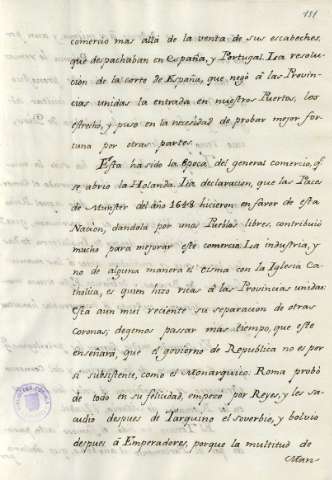 151
comercio mas allá de la venta de sus escabeches,
que despachaban en España, y Portugal. La resolu-
cion de la corte de España, que negó á las Provin-
cias unidas la entrada en nuestros Puertos, los
estrechó, y puso en la necesidad de probar mejor for-
tuna por otras partes.
Esta ha sido la época del general comercio, q.e
se abrio la Holanda. La declaracion, que las Paces
de Munster del año 1648 hicieron en favor de esta
Nacion, dandola por unos Pueblos libres, contribuió
mucho para mejorar este comercio. La industria, y
no de alguna manera el cisma con la Iglesia Ca-
tholica, es quien hizo ricas á las Provincias unidas.
Esta aun mui reciente su separacion de otras
Coronas; degemos passar mas tiempo, que este
enseñará, que el govierno de Republica no es por
si subsistente, como el Monarquico. Roma probó
de todo en su felicidad, empezó por Reyes, y les sa-
cudio despues de Tarquino el soverbio, y bolvio
despues á Emperadores, porque la multitud de
Man-